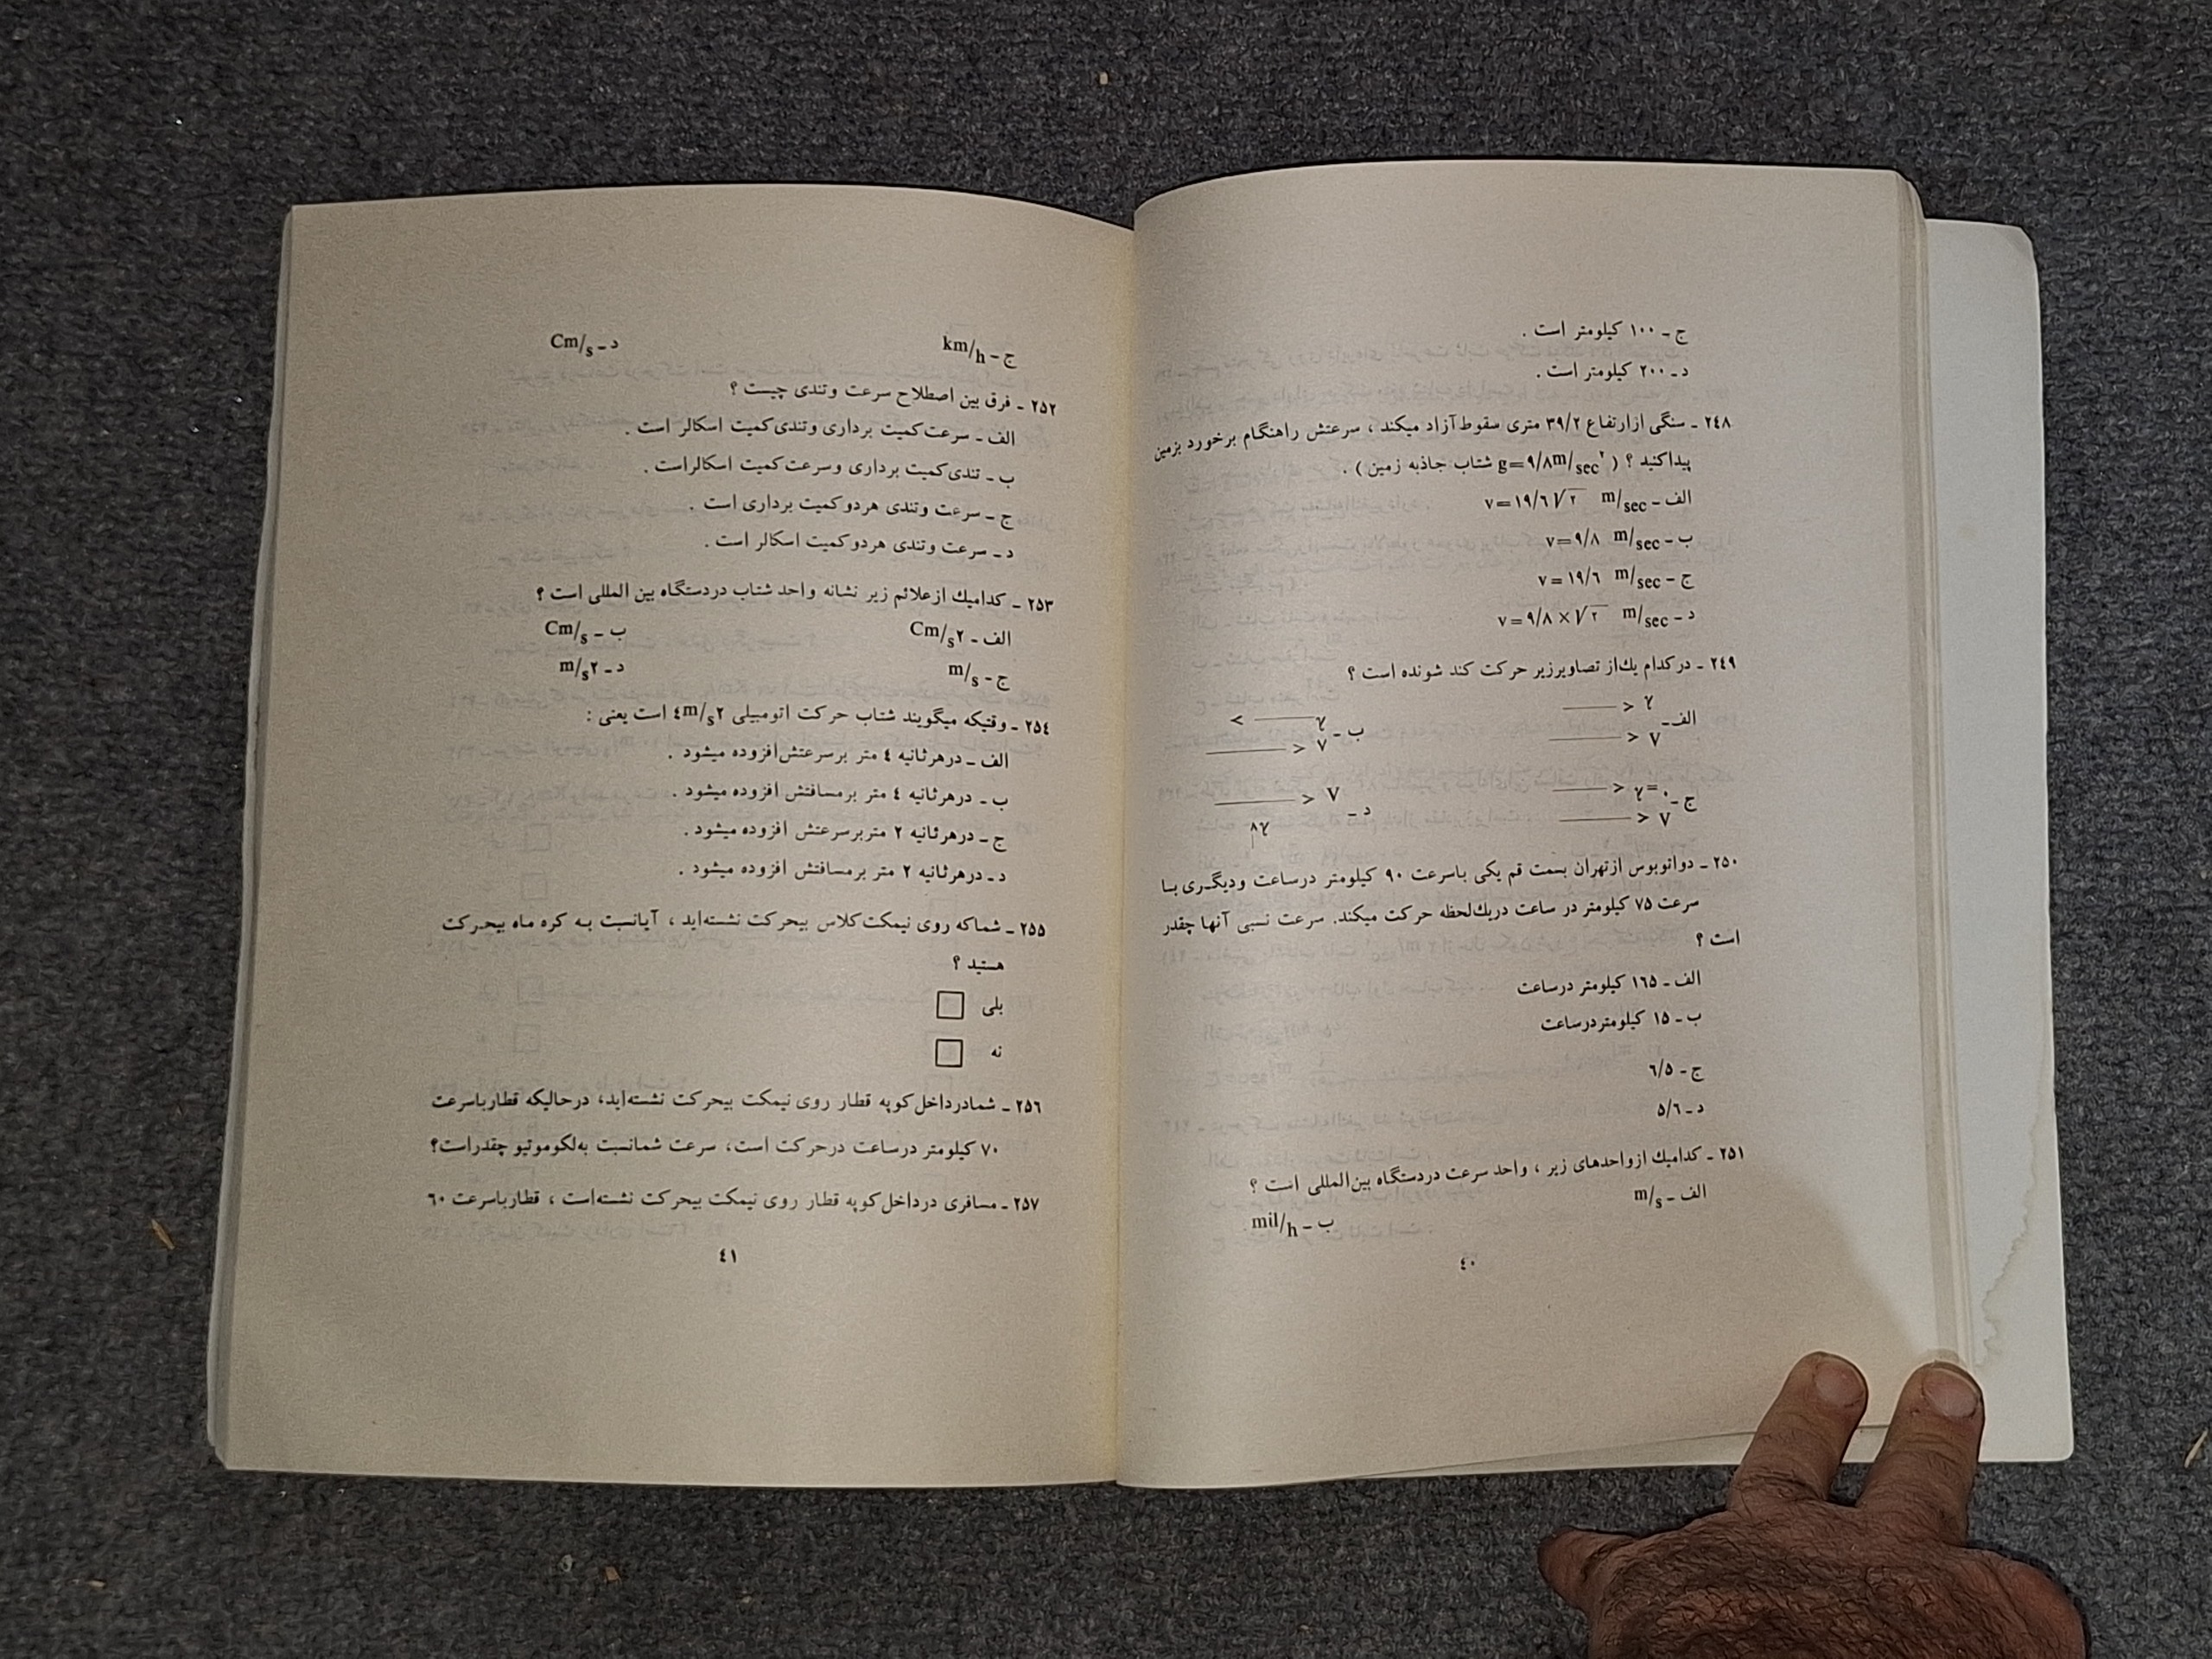 ج ـ ۱۰۰ کیلومتر است .
د ـ ۲۰۰ کیلومتر است .
۲٤۸ ـ سنگی ازارتفاع ۳۹/۲ متری سقوط آزاد میکند ، سرعتش راهنگام برخورد بزمین
پیداکنید ؟ ( g=۹/۸m/sec۲ شتاب جاذبه زمین ) .
الف ـ v=۱۹/٦√۲ m/sec
ب ـ v=۹/۸ m/sec
ج ـ v=۱۹/٦ m/sec
د ـ v=۹/۸×√۲ m/sec
۲٤۹ ـ درکدام یك‌از تصاویرزیر حرکت کند شونده است ؟
الف ـ γ ب ـ γ
V V
ج ـ γ=۰ د ـ V
V ۸γ
۲۵۰ ـ دواتوبوس ازتهران بسمت قم یکی باسرعت ۹۰ کیلومتر درساعت ودیگری با
سرعت ۷۵ کیلومتر در ساعت دریك‌لحظه حرکت میکند. سرعت نسبی آنها چقدر
است ؟
الف ـ ۱٦۵ کیلومتر درساعت
ب ـ ۱۵ کیلومتردرساعت
ج ـ ٦/۵
د ـ ۵/٦
۲۵۱ ـ کدامیك ازواحدهای زیر ، واحد سرعت دردستگاه بین‌المللی است ؟
الف ـ m/s ب ـ mil/h
٤۰
ج ـ km/h د ـ Cm/s
۲۵۲ ـ فرق بین اصطلاح سرعت وتندی چیست ؟
الف ـ سرعت‌کمیت برداری وتندی‌کمیت اسکالر است .
ب ـ تندی‌کمیت برداری وسرعت‌کمیت اسکالراست .
ج ـ سرعت وتندی هردوکمیت برداری است .
د ـ سرعت وتندی هردوکمیت اسکالر است .
۲۵۳ ـ کدامیك ازعلائم زیر نشانه واحد شتاب دردستگاه بین المللی است ؟
الف ـ Cm/s۲ ب ـ Cm/s
ج ـ m/s د ـ m/s۲
۲۵٤ ـ وقتیکه میگویند شتاب حرکت اتومبیلی ٤m/s۲ است یعنی :
الف ـ درهرثانیه ٤ متر برسرعتش‌افزوده میشود .
ب ـ درهرثانیه ٤ متر برمسافتش افزوده میشود .
ج ـ درهرثانیه ۲ متربرسرعتش افزوده میشود .
د ـ درهرثانیه ۲ متر برمسافتش افزوده میشود .
۲۵۵ ـ شماکه روی نیمکت‌کلاس بیحرکت نشسته‌اید ، آیانسبت به کره ماه بیحرکت
هستید ؟
بلی
نه
۲۵٦ ـ شمادرداخل‌کوپه قطار روی نیمکت بیحرکت نشسته‌اید، درحالیکه قطارباسرعت
۷۰ کیلومتر درساعت درحرکت است، سرعت شمانسبت به‌لکوموتیو چقدراست؟
۲۵۷ ـ مسافری درداخل‌کوپه قطار روی نیمکت بیحرکت نشسته‌است ، قطارباسرعت ٦۰
٤۱